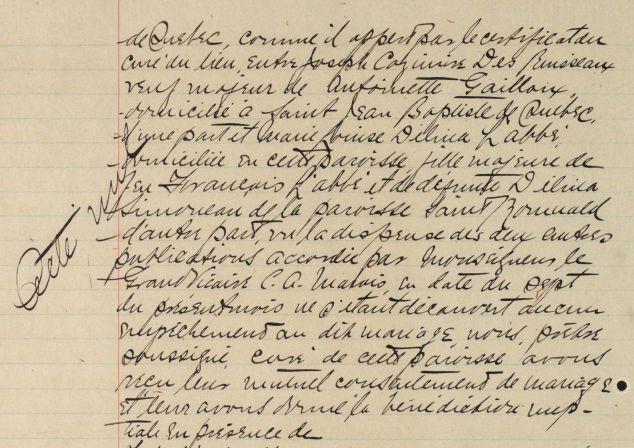 de Quebec, comme il appert par le certificat du
curé du lieu, entre Joseph Casimire Des Ruisseaux
veuf majeur de Antoinette
domicilié à Saint Jean Baptiste de Quebec,
d'une part et Marie Louise Délina L'abbé,
domiciliée en cette paroisse, fille majeure de
feu François L'abbé et de défunte Délina
Simoneau de la paroisse Saint Romuald
d'autre part, vu la dispense des deux autres
publications accordée par Monseigneur le
Grand Vicaire C. A. Marois, en date du sept
du présent mois ne s'étant découvert aucun
empêchement au dit mariage, nous, prêtre
soussigné, curé de cette paroisse avons
reçu leur mutuel consentement de mariage
et leur avons donné la bénédiction nup-
tiale en présence de